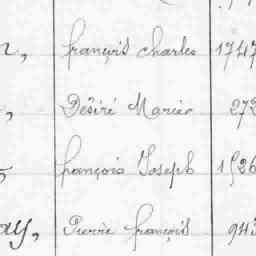 n, françois charles 1747
, Désiré Marie 272
, françois Joseph 1526
ay, Pierre françois 943